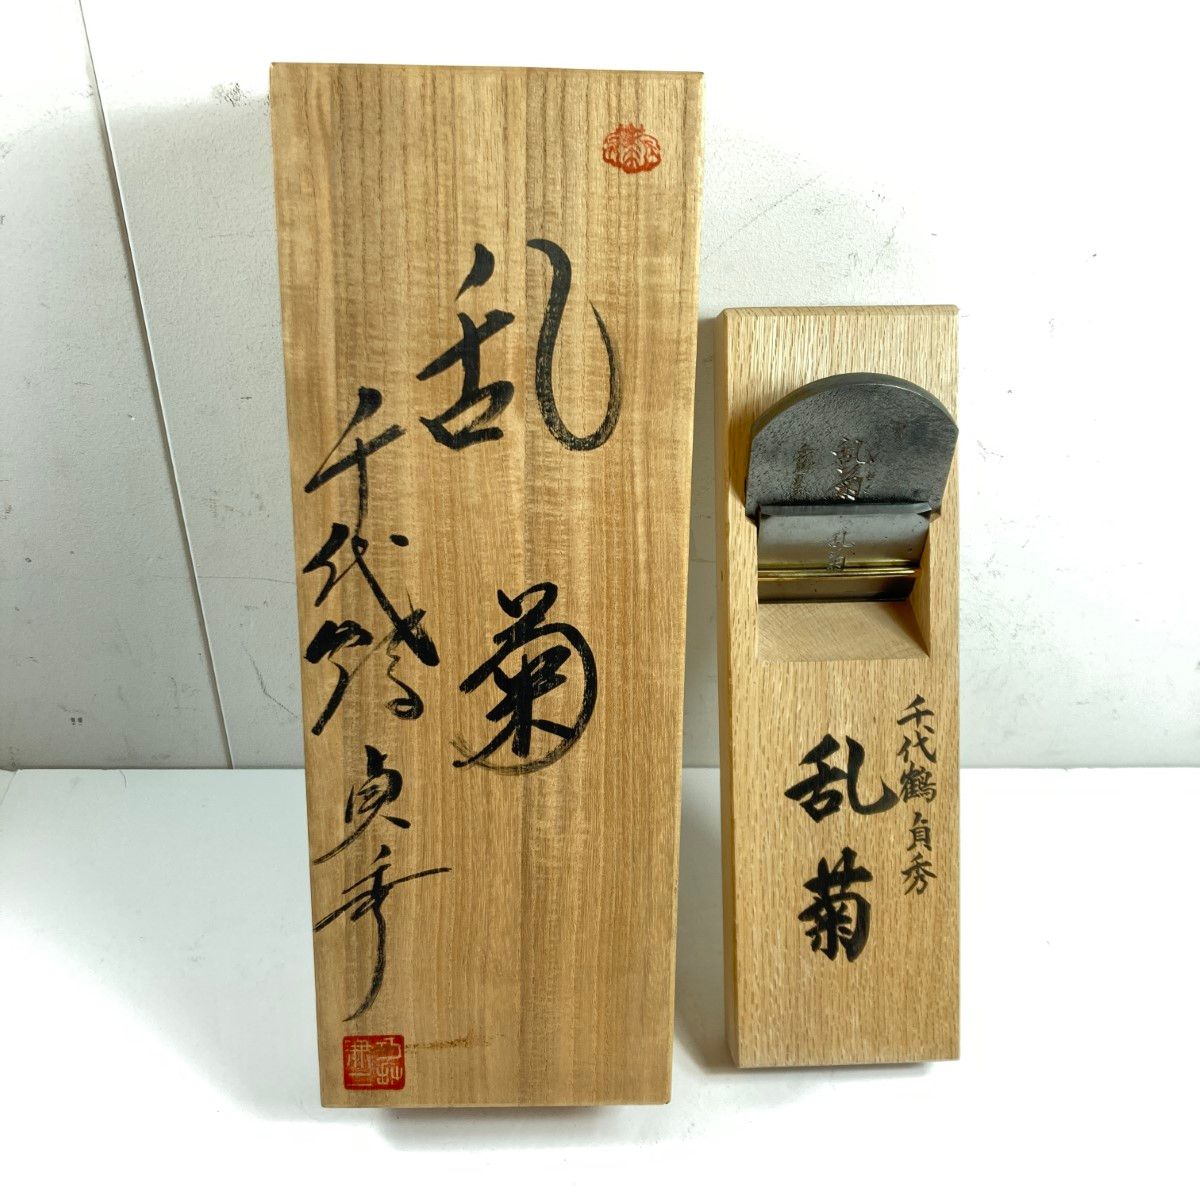 乱菊
千代鶴貞秀
乱菊
乱菊
千代鶴貞秀
乱菊